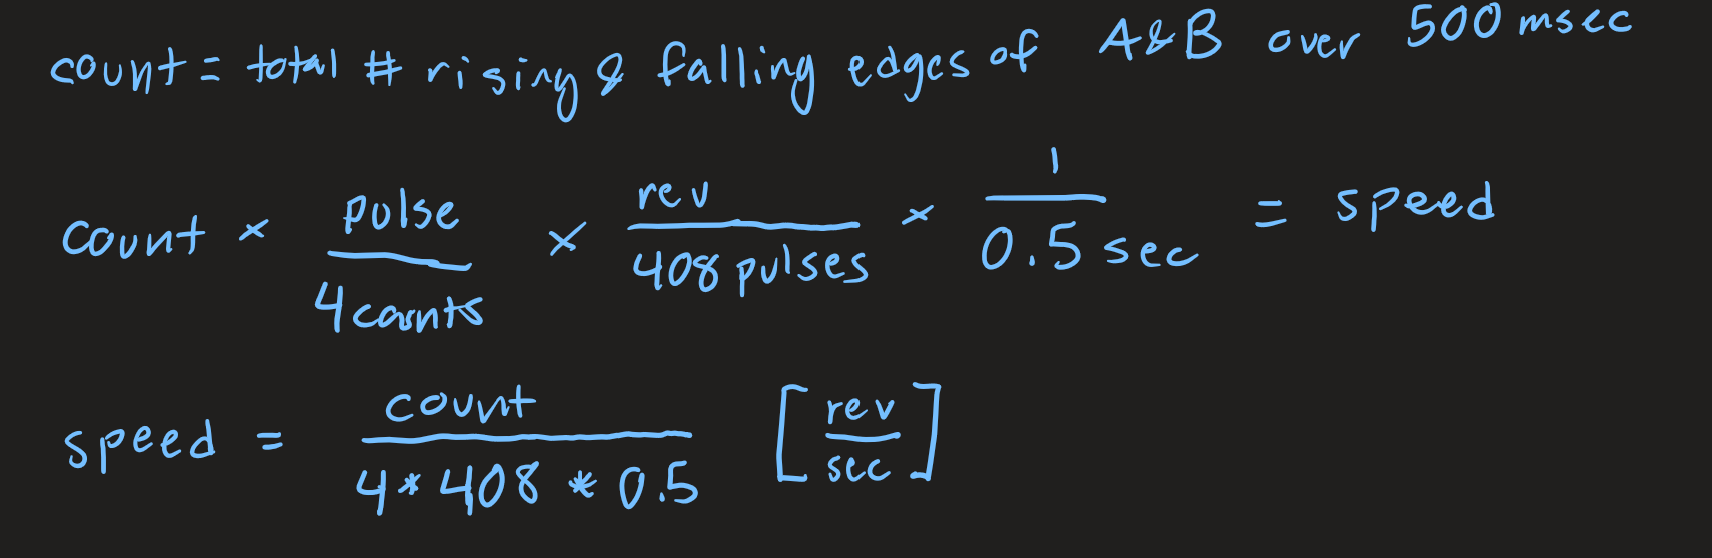 count = total # rising & falling edges of A&B over 500 msec
count × pulse/4 counts × rev/408 pulses × 1/0.5 sec = speed
speed = count/4*408*0.5 [rev/sec]